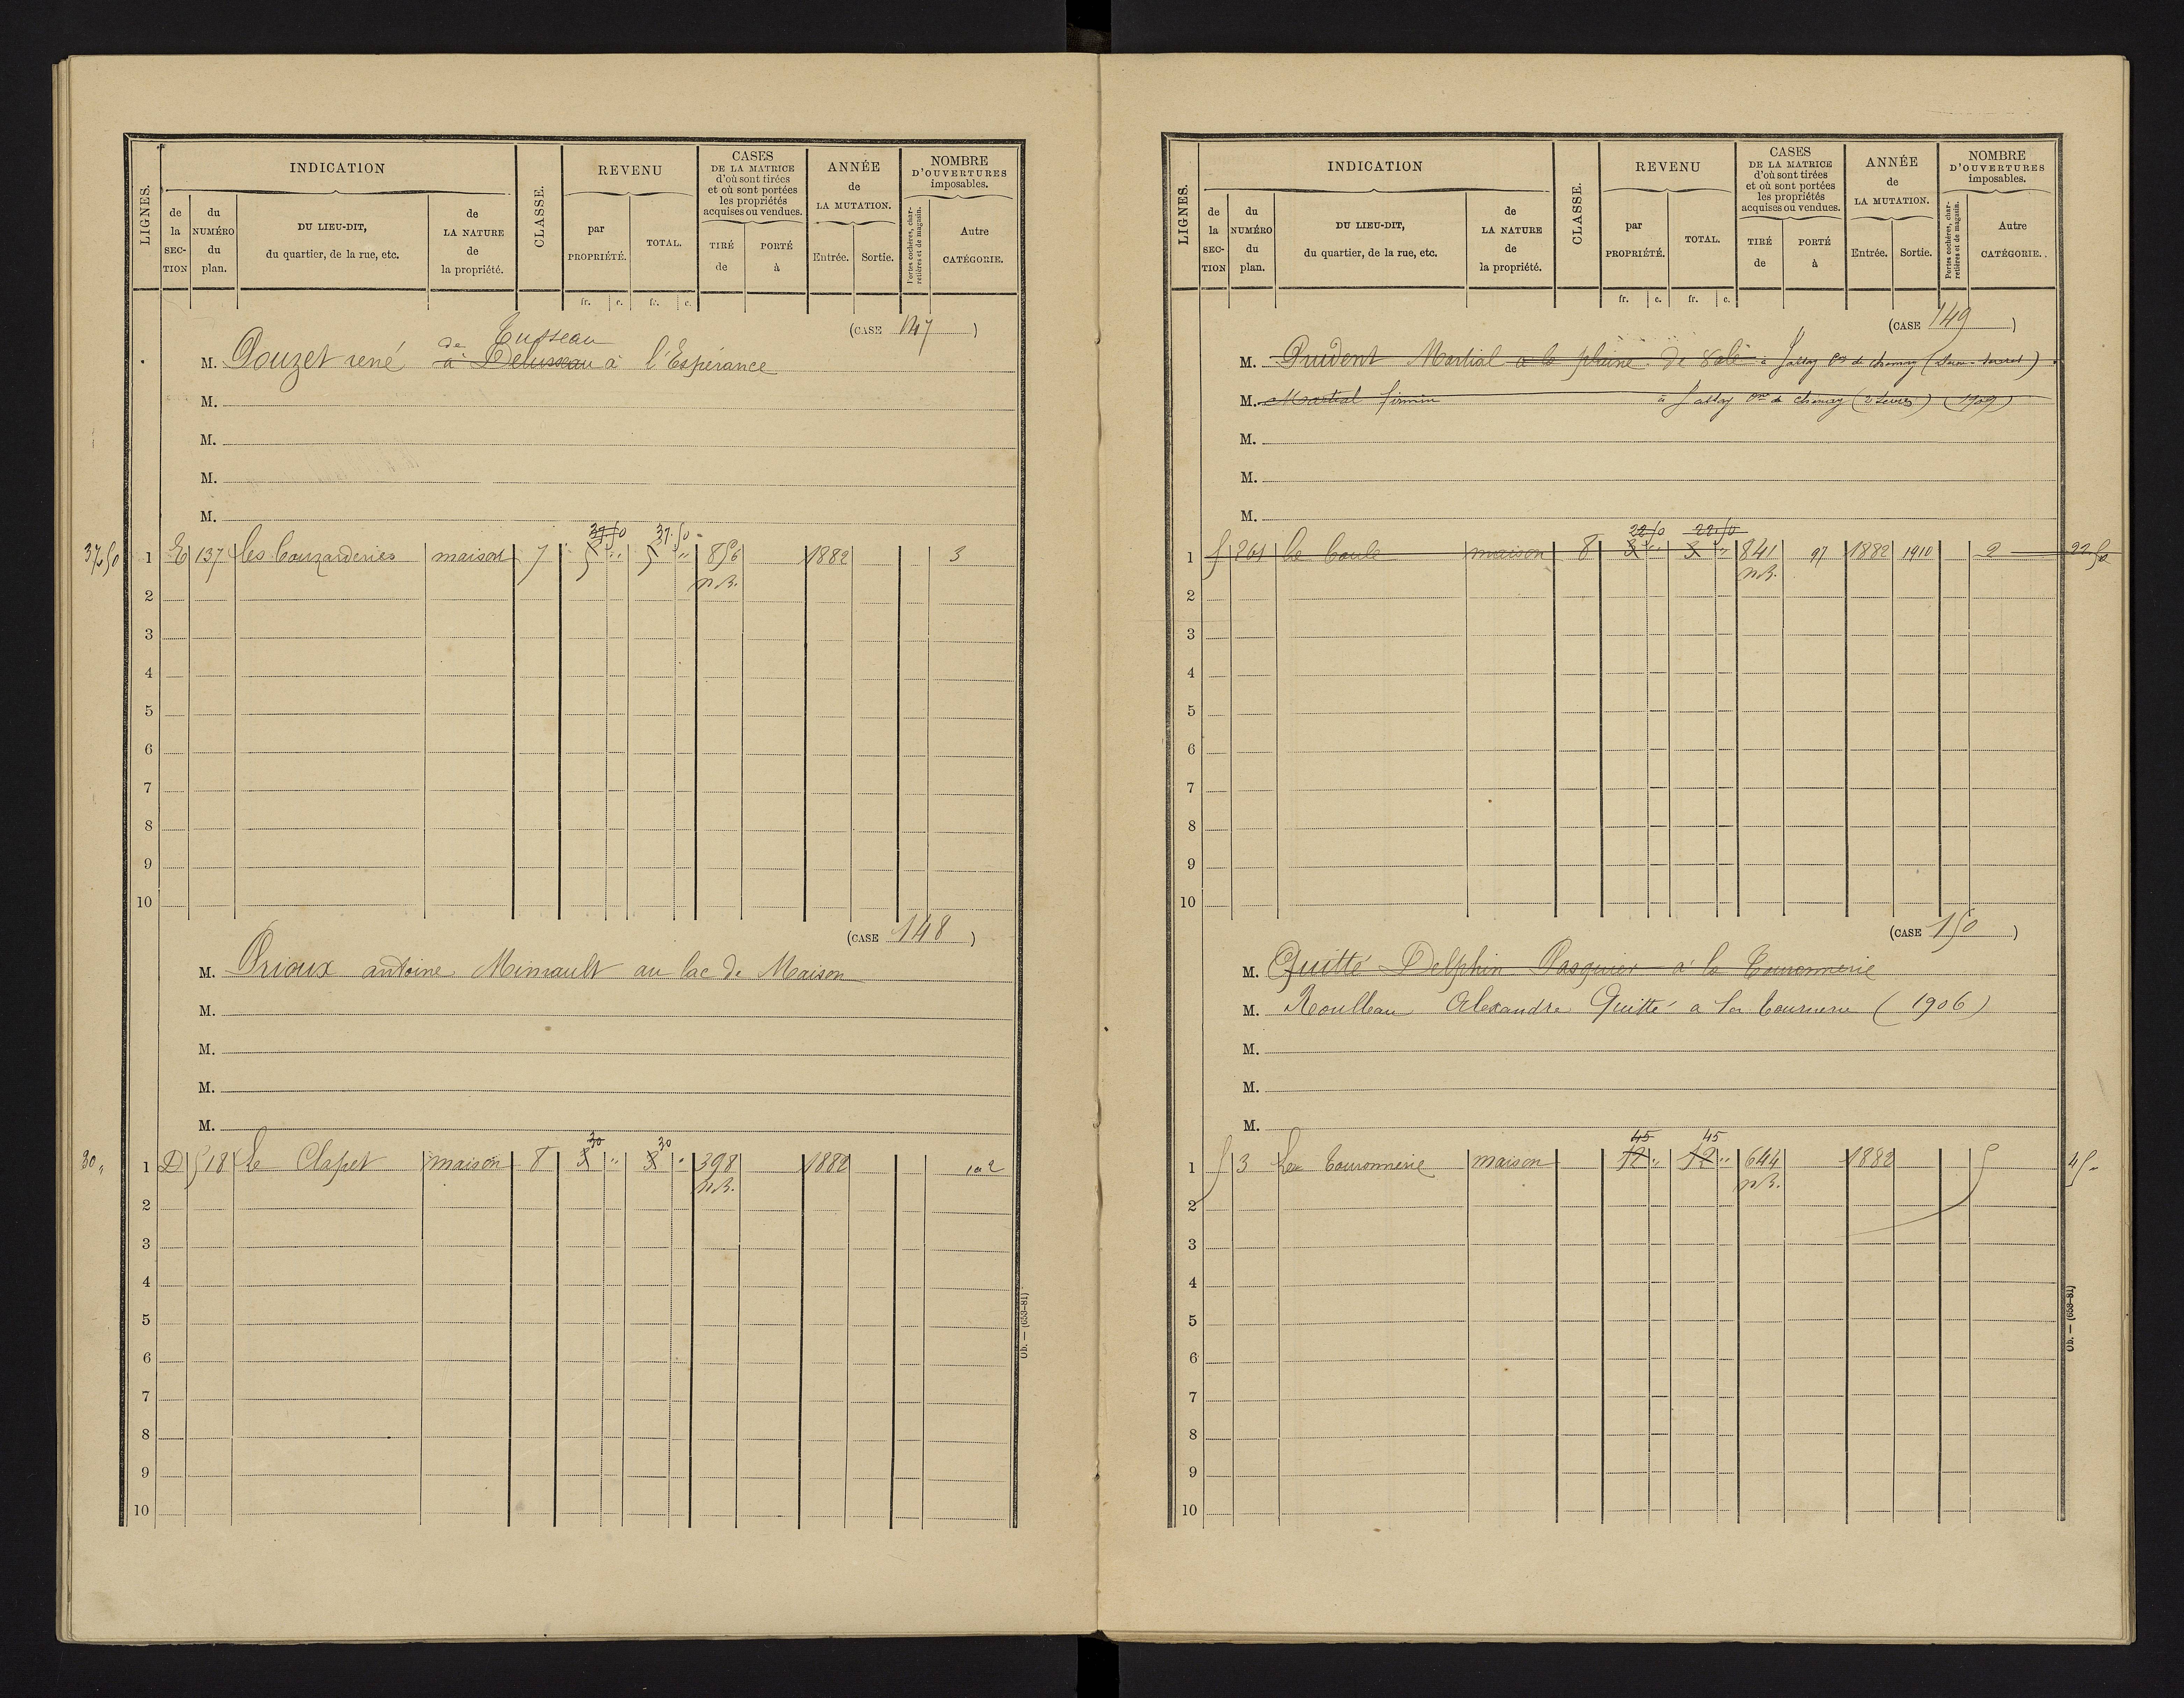 LIGNES.
INDICATION
CLASSE.
REVENU
CASES
DE LA MATRICE
d'où sont tirées
et où sont portées
les propriétés
acquises ou vendues.
ANNÉE
de
LA MUTATION.
NOMBRE
D'OUVERTURES
imposables.
de la SEC-TION
du NUMÉRO du plan.
DU LIEU-DIT,
du quartier, de la rue, etc.
de LA NATURE de la propriété.
par PROPRIÉTÉ.
TOTAL.
TIRÉ de
PORTÉ à
Entrée.
Sortie.
Portes cochères, charretières et de magasin.
Autre CATÉGORIE.
fr. c. fr. c.
(CASE 147)
de Tusseau
M. Pouzet rené à Delusseau à l'Espérance
M.
M.
M.
M.
37 50 37 50
37 50 1 E 137 les Couzarderies maison 7 5 " 5 " 856 1882 3
n.B.
2
3
4
5
6
7
8
9
10
(CASE 148)
M. Prioux antoine Minault au lac de Maison
M.
M.
M.
M.
30 30
30 " 1 D 518 Le Clapet maison 8 3 " 3 " 398 1882 2
n.B.
2
3
4
5
6
7
8
9
10
Ob. — (653-81)
LIGNES.
INDICATION
CLASSE.
REVENU
CASES
DE LA MATRICE
d'où sont tirées
et où sont portées
les propriétés
acquises ou vendues.
ANNÉE
de
LA MUTATION.
NOMBRE
D'OUVERTURES
imposables.
de la SEC-TION
du NUMÉRO du plan.
DU LIEU-DIT,
du quartier, de la rue, etc.
de LA NATURE de la propriété.
par PROPRIÉTÉ.
TOTAL.
TIRÉ de
PORTÉ à
Entrée.
Sortie.
Portes cochères, charretières et de magasin.
Autre CATÉGORIE.
fr. c. fr. c.
(CASE 149)
M. Prudent Martial a la plaine de à
M. Martial firmin à (1909)
M.
M.
M.
22 50 22 50
1 f 261 le maison 8 3 " 3 " 841 97 1882 1910 2 22 50
n.B.
2
3
4
5
6
7
8
9
10
(CASE 150)
M. Quitté Delphin Pasquier à la Couronnerie
M. Roulleau Alexandre Quitté a la (1906)
M.
M.
M.
45 45
1 f 3 La Couronnerie maison 12 " 12 " 644 1882 5 45 "
n.B.
2
3
4
5
6
7
8
9
10
Ob. — (653-81)